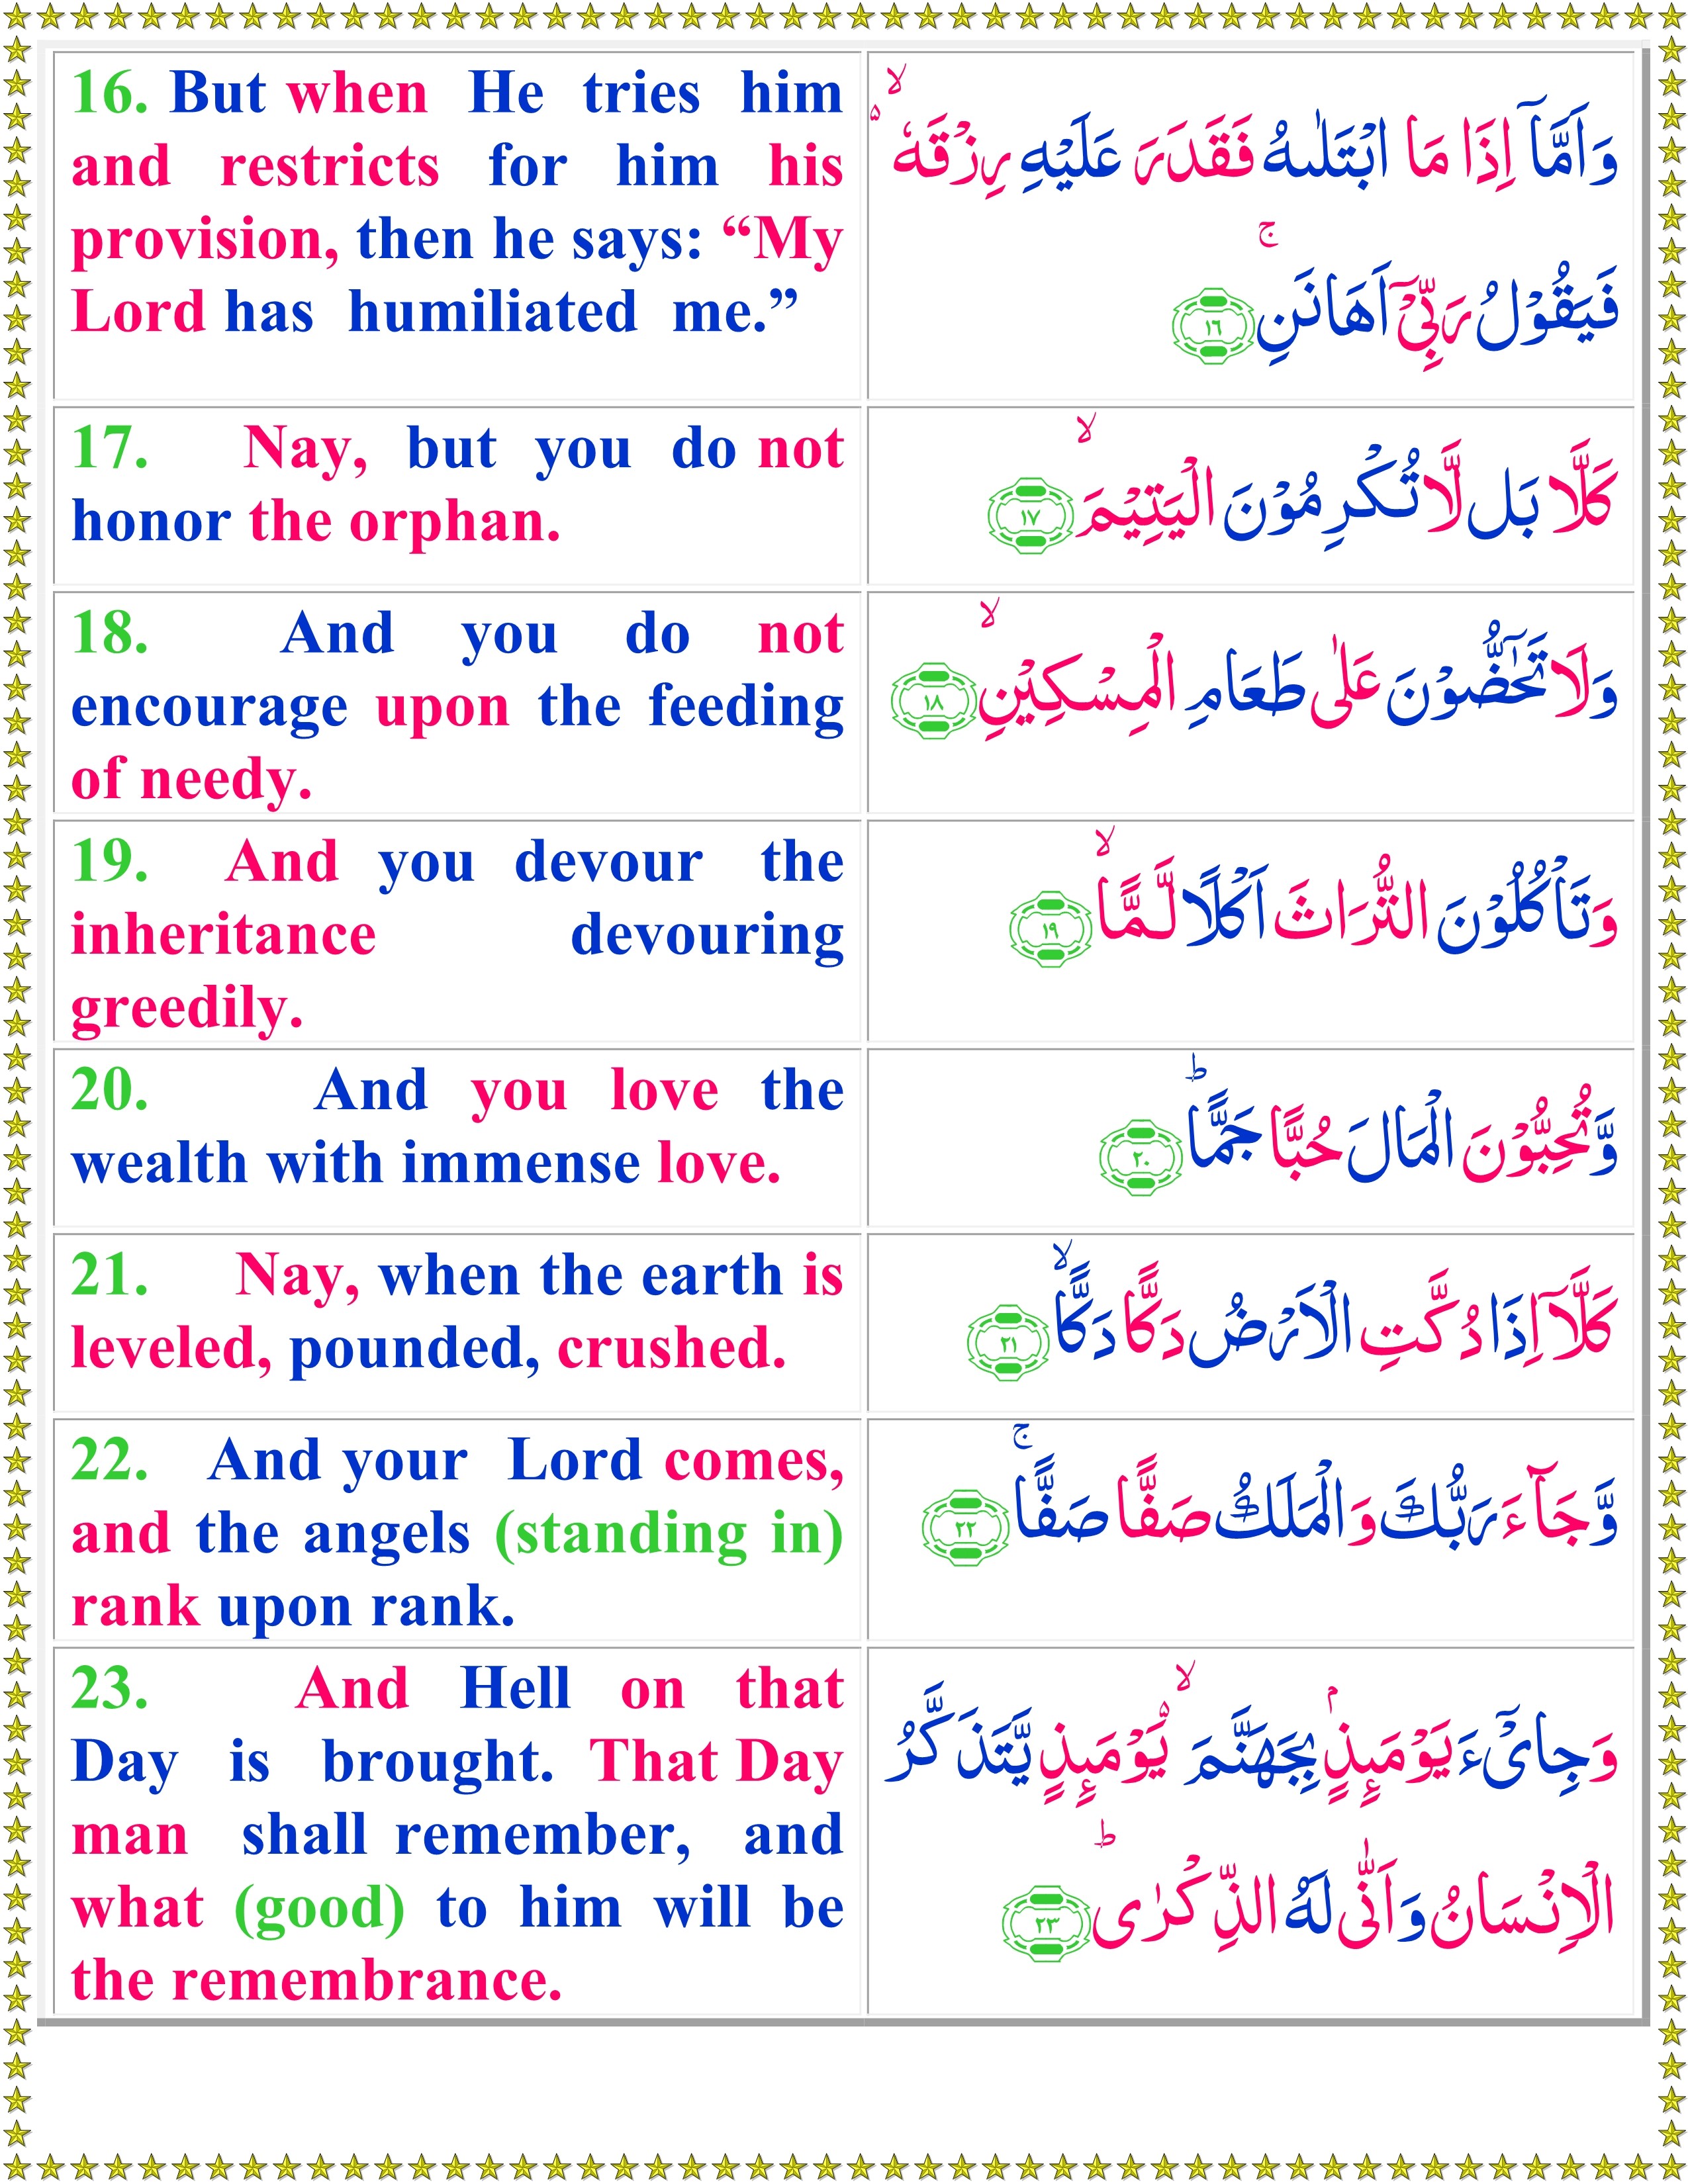 16. But when He tries him
and restricts for him his
provision, then he says: “My
Lord has humiliated me.”
وَاَمَّاۤ اِذَا مَا ابْتَلٰىهُ فَقَدَرَ عَلَيْهِ رِزْقَهٗ ۙ۬
فَيَقُوْلُ رَبِّىْۤ اَهَانَنِ ۚ ﴿۱۶﴾
17. Nay, but you do not
honor the orphan.
كَلَّا بَل لَّا تُكْرِمُوْنَ الْيَتِيْمَ ۙ ﴿۱۷﴾
18. And you do not
encourage upon the feeding
of needy.
وَلَا تَحٰٓضُّوْنَ عَلٰى طَعَامِ الْمِسْكِيْنِ ۙ ﴿۱۸﴾
19. And you devour the
inheritance devouring
greedily.
وَتَاْكُلُوْنَ التُّرَاثَ اَكْلًا لَّـمًّا ۙ ﴿۱۹﴾
20. And you love the
wealth with immense love.
وَّتُحِبُّوْنَ الْمَالَ حُبًّا جَمًّا ؕ ﴿۲۰﴾
21. Nay, when the earth is
leveled, pounded, crushed.
كَلَّاۤ اِذَا دُكَّتِ الْاَرْضُ دَكًّا دَكًّا ۙ ﴿۲۱﴾
22. And your Lord comes,
and the angels (standing in)
rank upon rank.
وَّجَآءَ رَبُّكَ وَالْمَلَكُ صَفًّا صَفًّا ۚ ﴿۲۲﴾
23. And Hell on that
Day is brought. That Day
man shall remember, and
what (good) to him will be
the remembrance.
وَجِاىْٓءَ يَوْمَٮِٕذٍۢ بِجَهَنَّمَ ۙ يَوْمَٮِٕذٍ يَّتَذَكَّرُ
الْاِنْسَانُ وَاَنّٰى لَهُ الذِّكْرٰى ؕ ﴿۲۳﴾